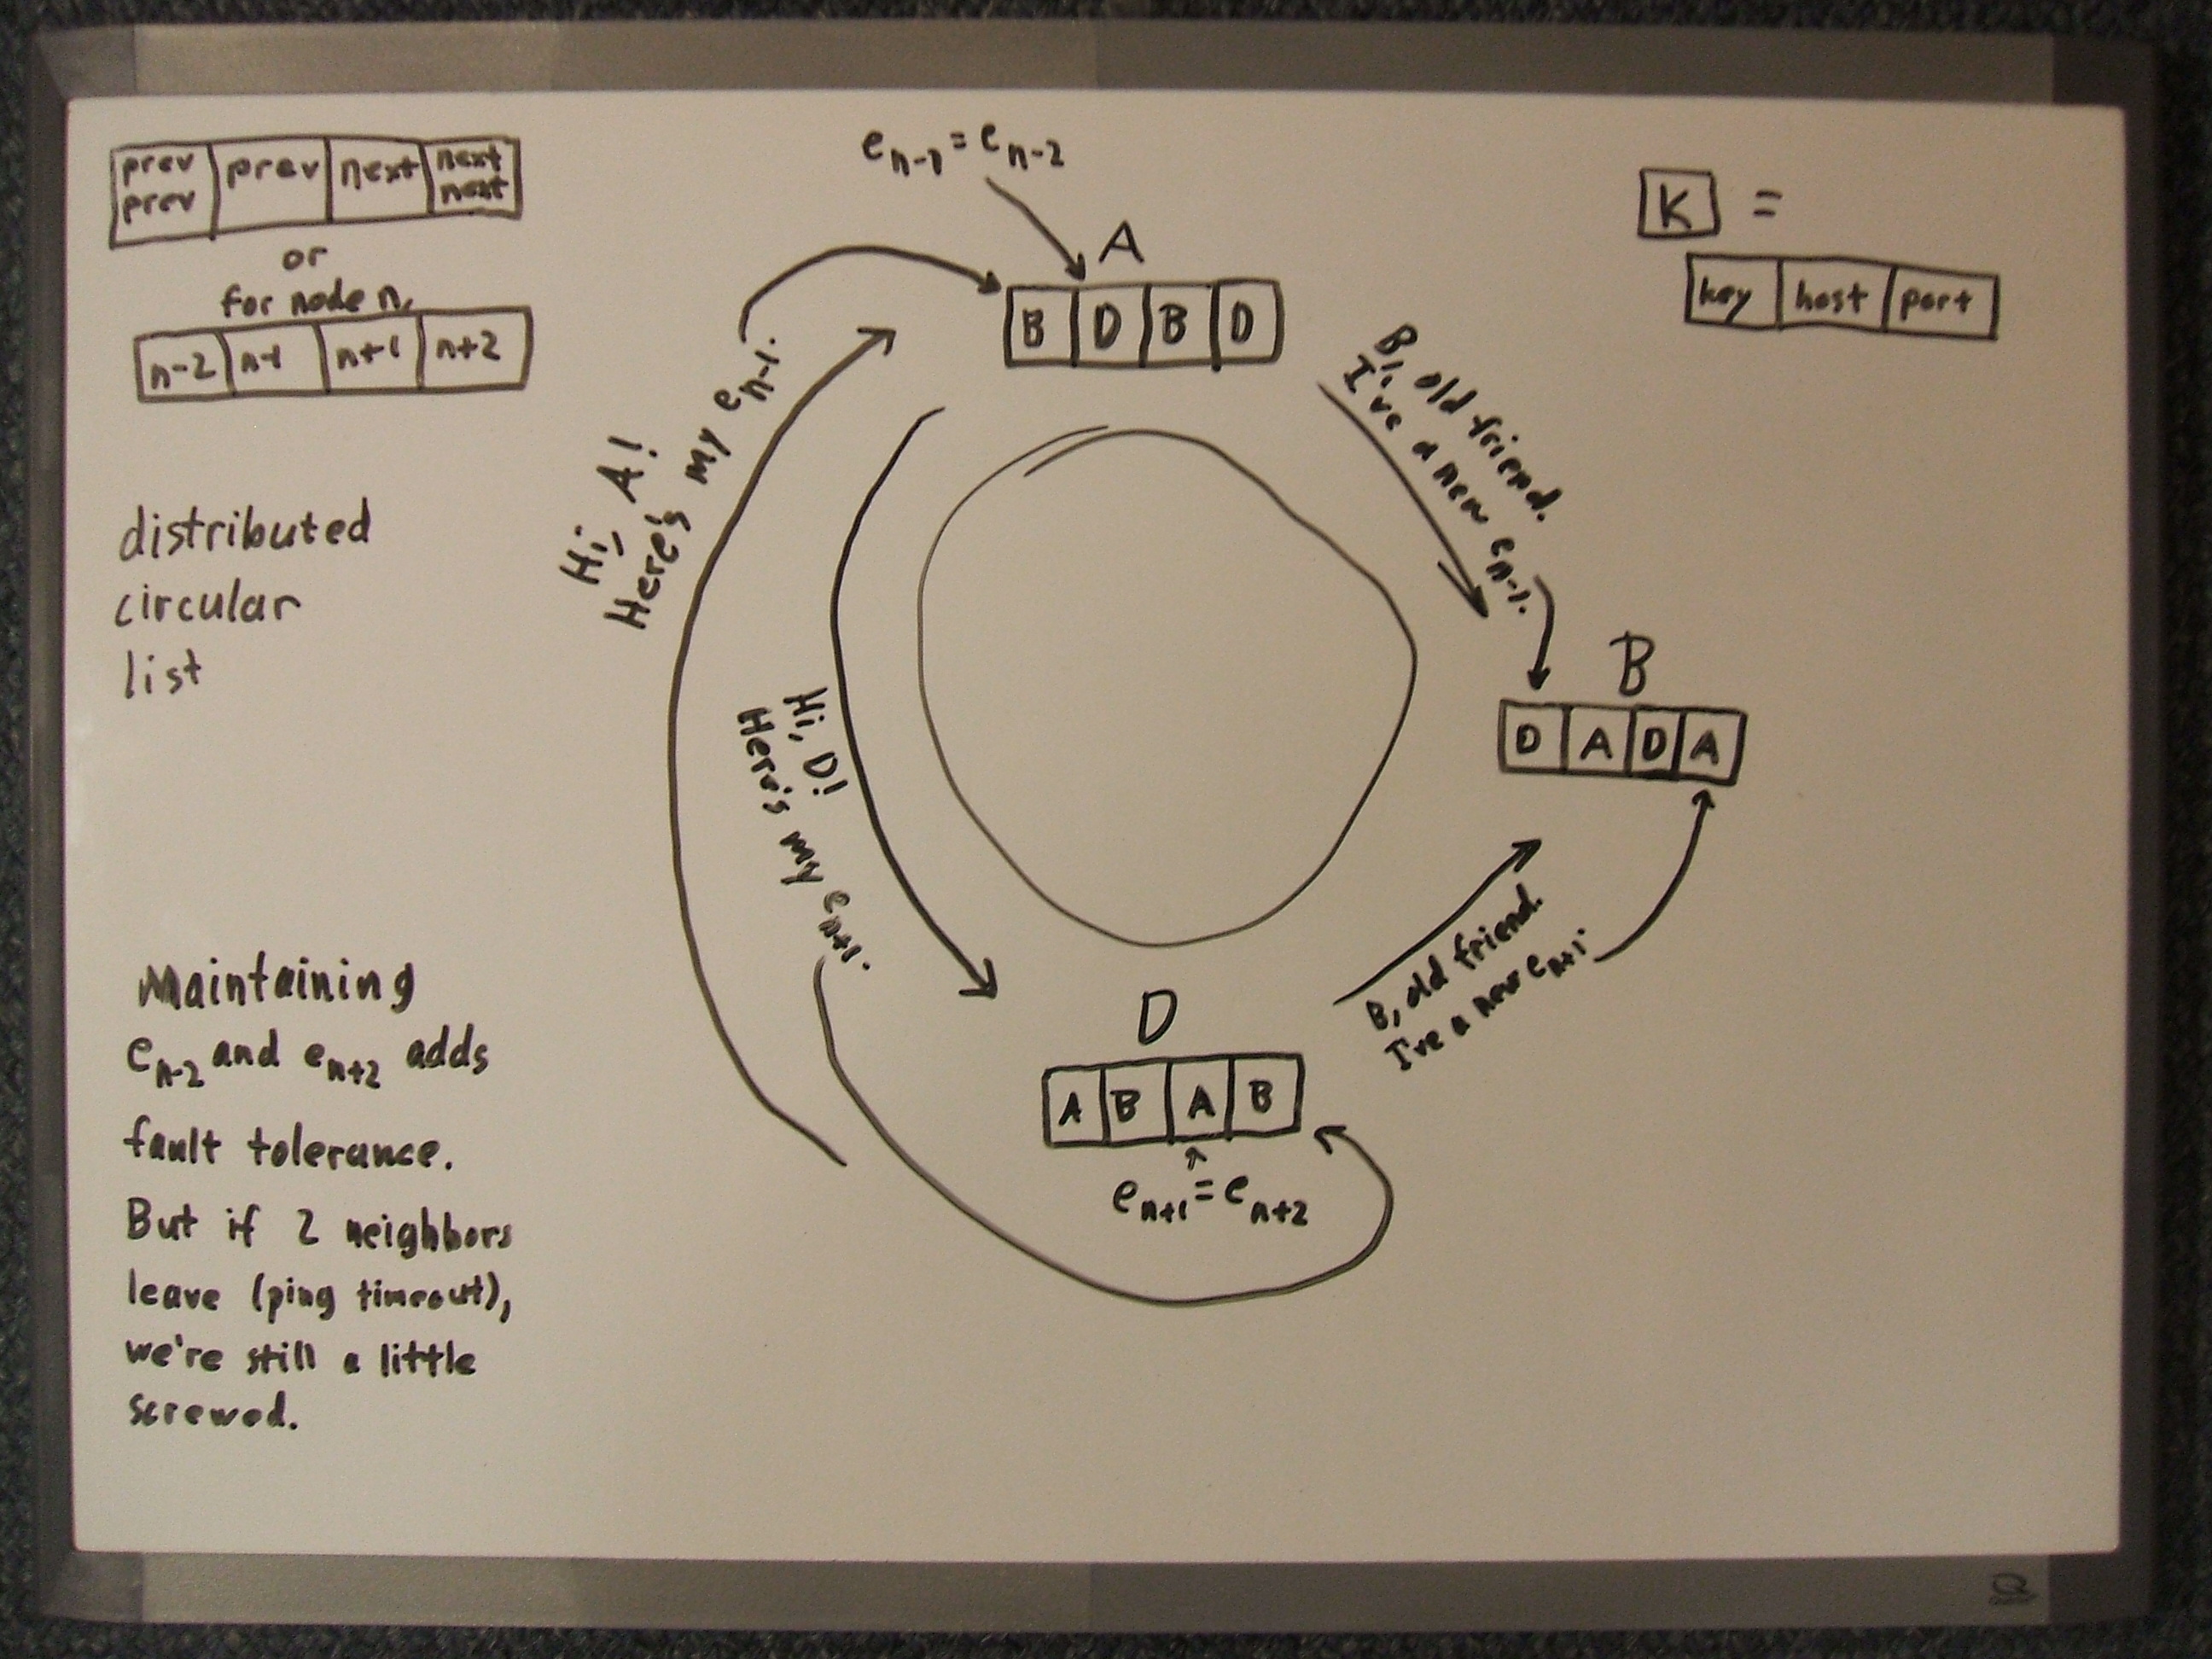 prev prev | prev | next | next next
or
for node n,
n-2 | n-1 | n+1 | n+2
distributed
circular
list
Maintaining
e_{n-2} and e_{n+2} adds
fault tolerance.
But if 2 neighbors
leave (ping timeout),
we're still a little
screwed.
e_{n-1} = e_{n-2}
A
B | D | B | D
Hi, A!
Here's my e_{n-1}.
Hi, D!
Here's my e_{n+1}.
B, old friend.
I've a new e_{n-1}.
B
D | A | D | A
B, old friend.
I've a new e_{n+1}.
D
A | B | A | B
e_{n+1} = e_{n+2}
K =
key | host | port